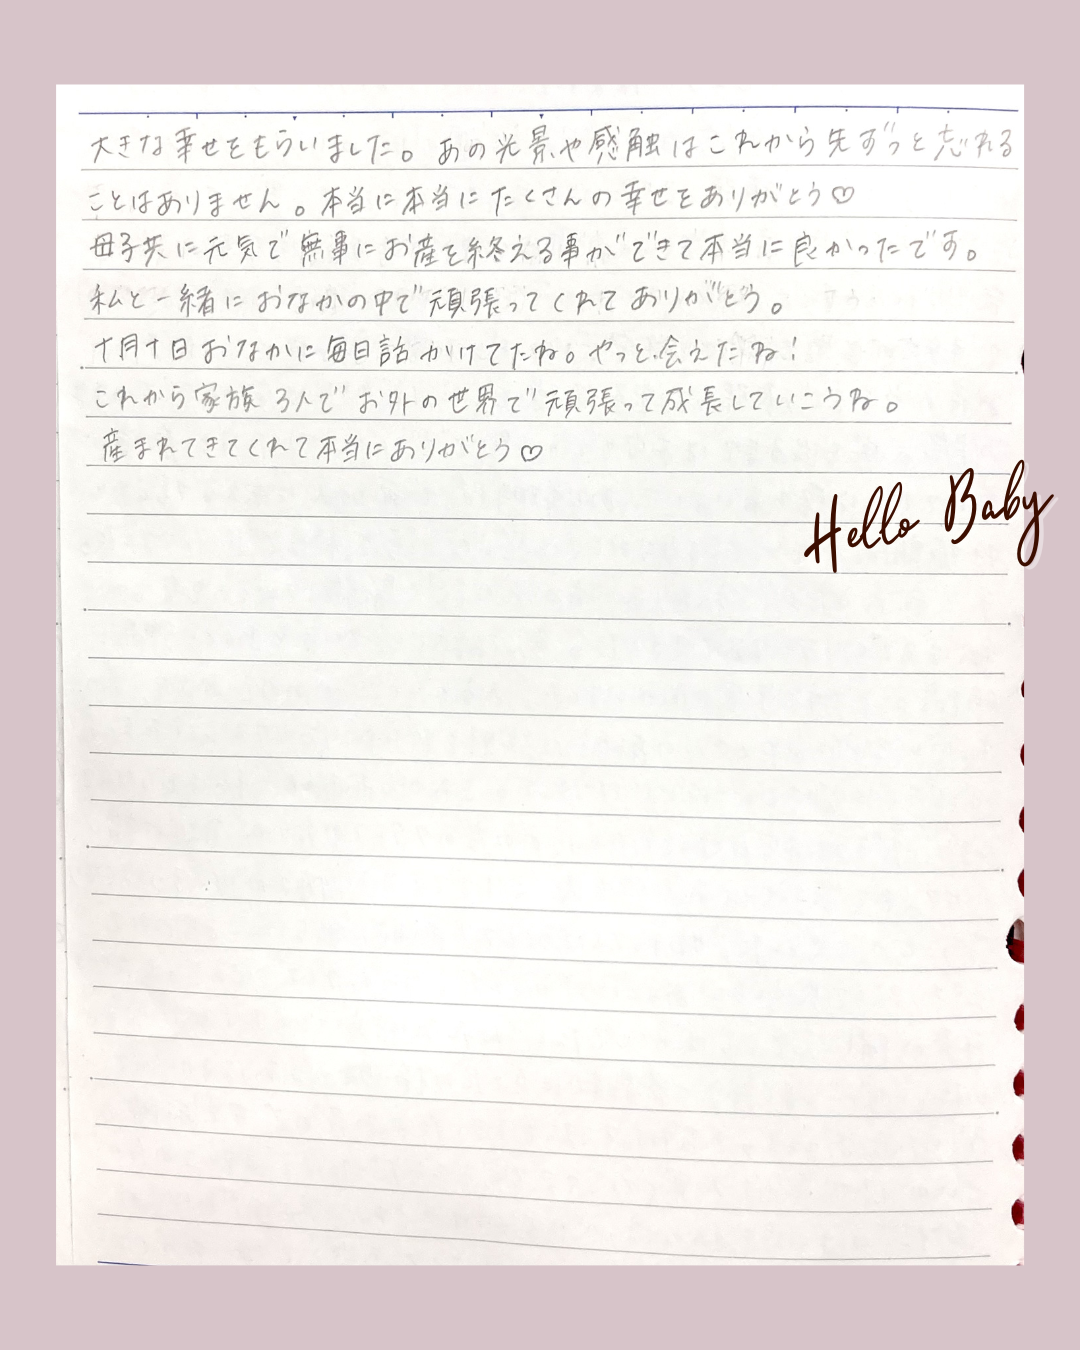 大きな幸せをもらいました。あの光景や感触はこれから先ずっと忘れる
ことはありません。本当に本当にたくさんの幸せをありがとう♡
母子共に元気で無事にお産を終える事ができて本当に良かったです。
私と一緒におなかの中で頑張ってくれてありがとう。
十月十日おなかに毎日話かけてたね。やっと会えたね!
これから家族3人でお外の世界で頑張って成長していこうね。
産まれてきてくれて本当にありがとう♡
Hello Baby